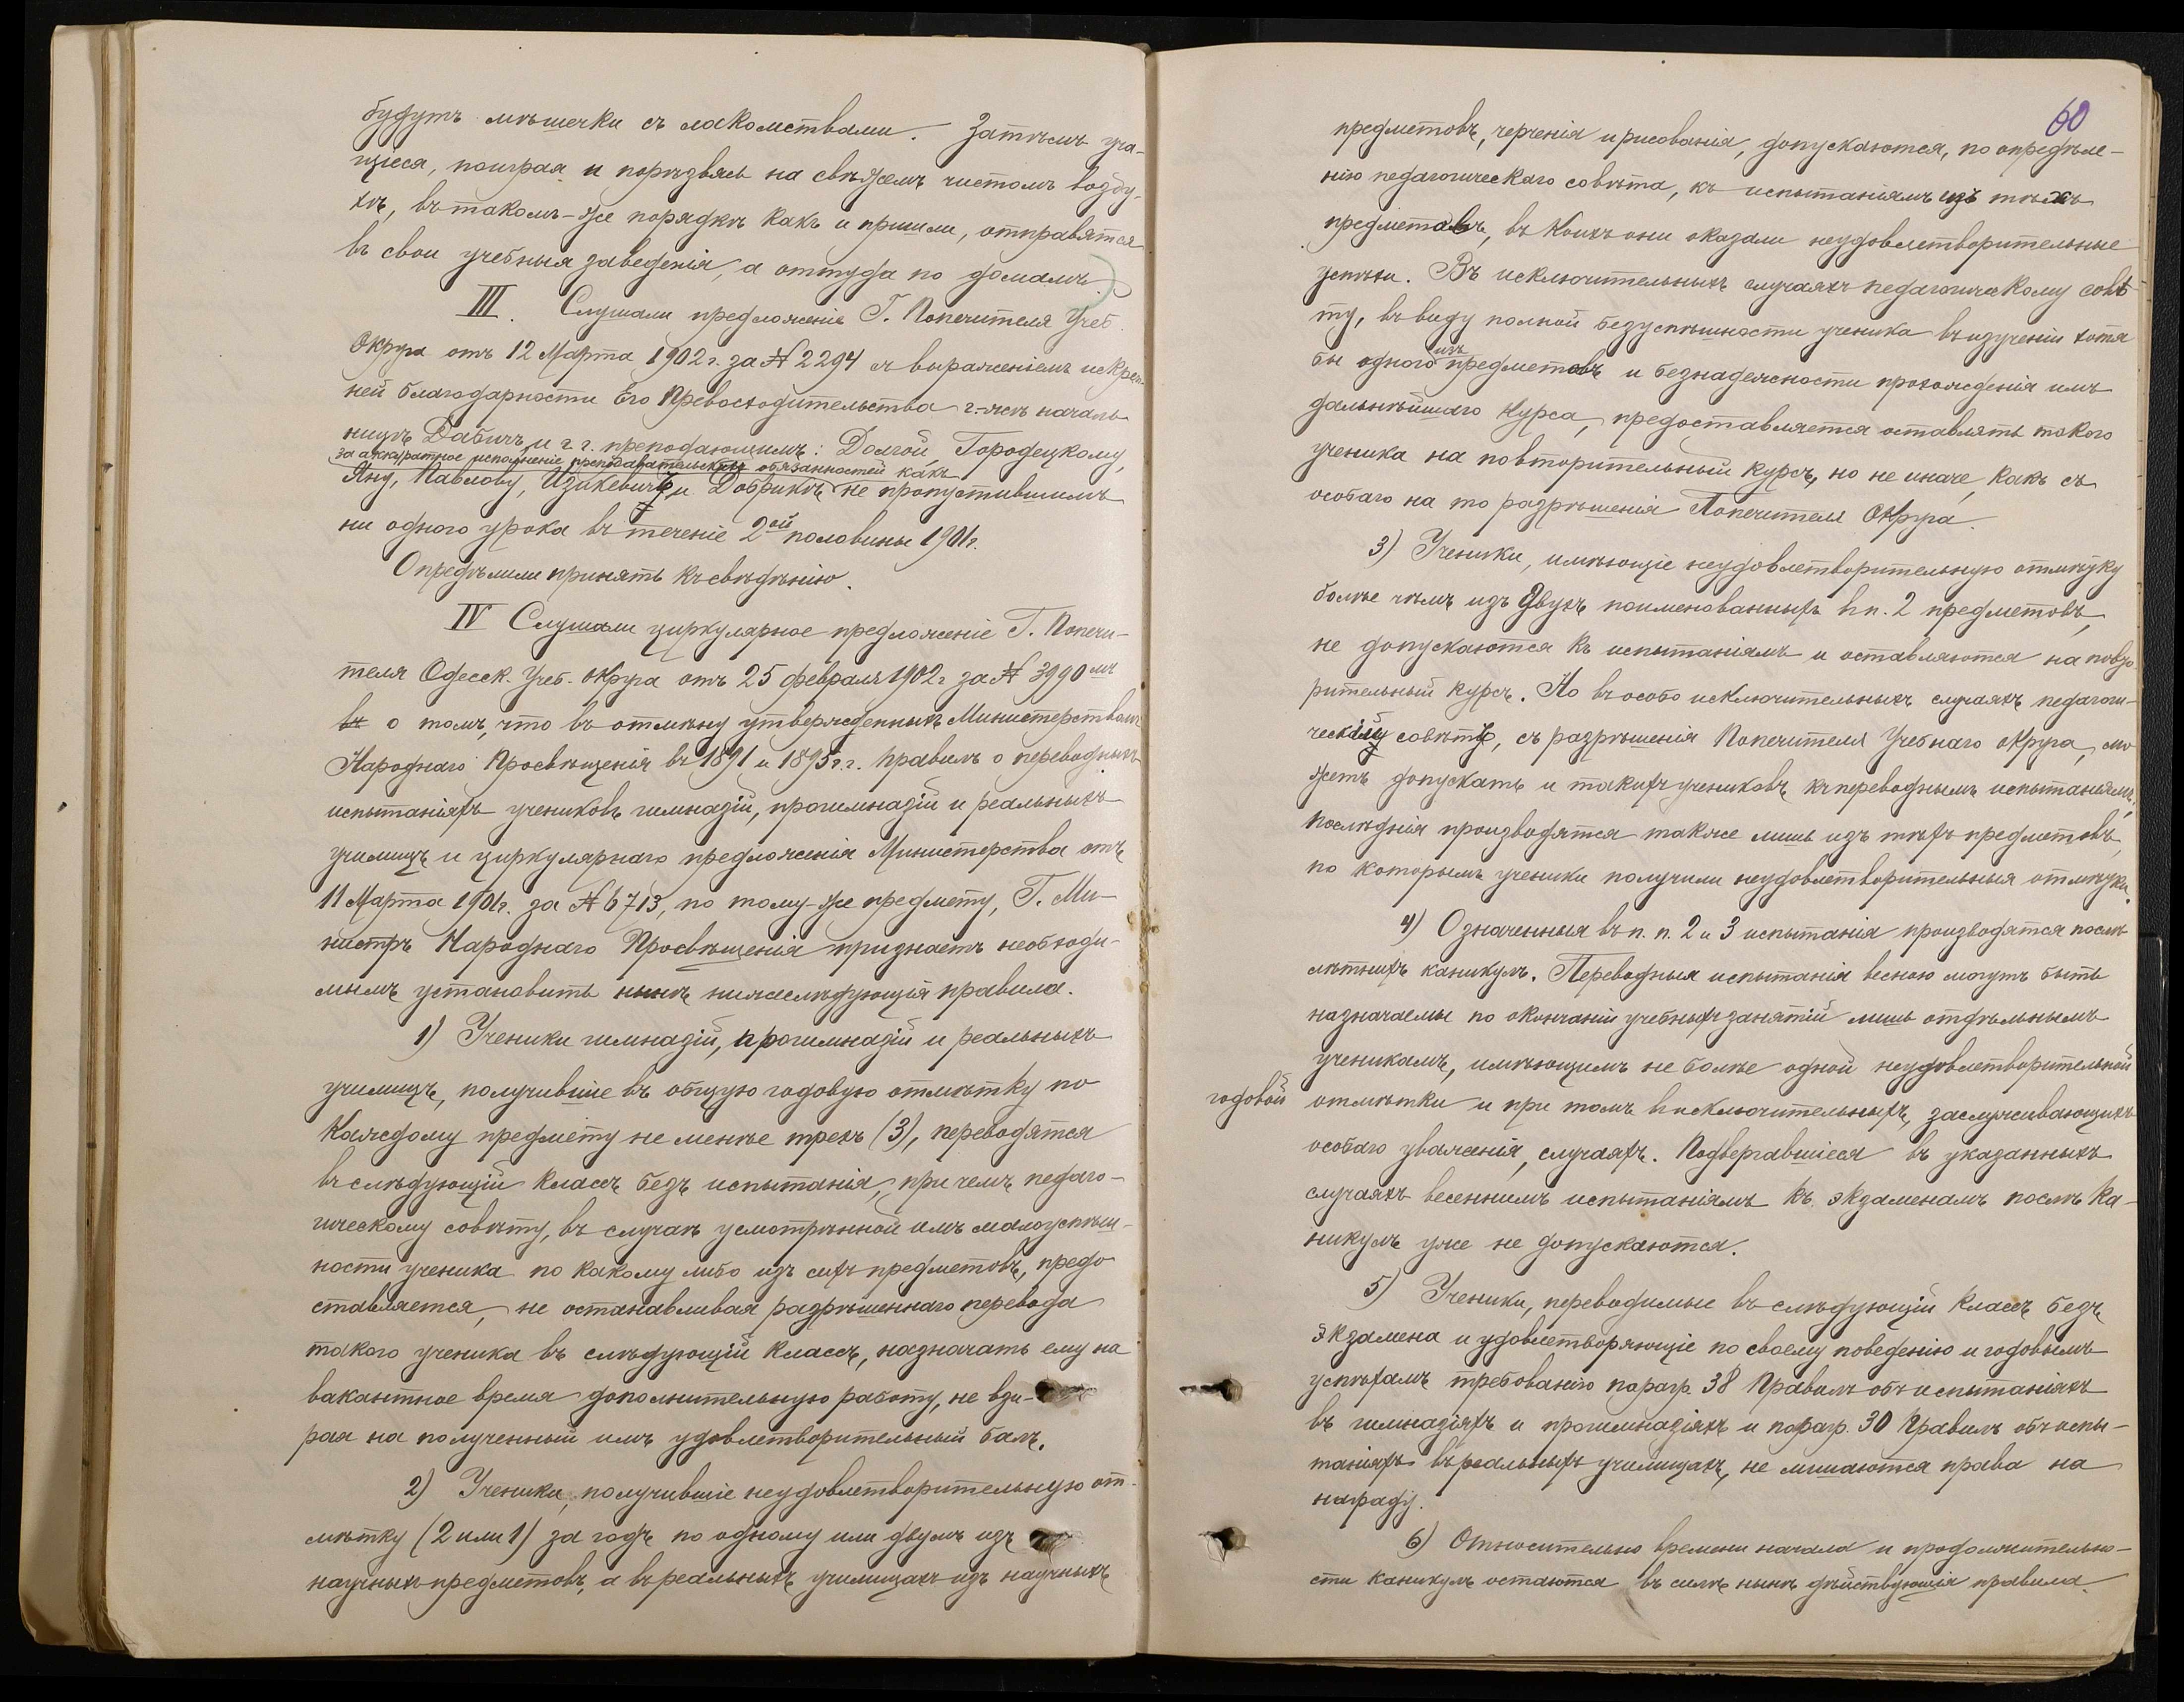 будутъ мѣшечки съ лакомствами. Затѣмъ уча-
щіеся, поиграя и порѣзвясь на свѣжемъ чистомъ возду-
хѣ, въ такомъ-же порядкѣ какъ и пришли, отправятся
въ свои учебныя заведенія, а оттуда по домамъ.
III. Слушали предложеніе Г. Попечителя Учеб.
Округа отъ 12 Марта 1902 г. за № 2294 съ выраженіемъ искрен-
ней благодарности Его Превосходительства г-жѣ началь-
ницѣ Дабичъ и г.г. преподающимъ: Долгой, Городецкому,
за аккуратное исполненіе преподавательскихъ обязанностей какъ
Яну, Павлову, Изикевичъ и Добрикъ не пропустившимъ
ни одного урока въ теченіе 2ой половины 1901 г.
Опредѣлили принять къ свѣдѣнію.
IV Слушали циркулярное предложеніе Г. Попечи-
теля Одесск. Учеб. округа отъ 25 февраля 1902 г. за № 3990мъ
въ о томъ, что въ отмѣну утвержденныхъ Министерствомъ
Народнаго Просвѣщенія въ 1891 и 1895 г.г. правилъ о переводныхъ
испытаніяхъ учениковъ гимназій, прогимназій и реальныхъ
училищъ и циркулярнаго предложенія Министерства отъ
11 Марта 1901 г. за № 6713, по тому-же предмету, Г. Ми-
нистръ Народнаго Просвѣщенія признаетъ необходи-
мымъ установить нынѣ нижеслѣдующія правила.
1) Ученики гимназій, прогимназій и реальныхъ
училищъ, получившіе въ общую годовую отмѣтку по
каждому предмету не менѣе трехъ (3), переводятся
въ слѣдующій классъ безъ испытанія, при чемъ педаго-
гическому совѣту, въ случаѣ усмотрѣнной имъ малоуспѣш-
ности ученика по какому либо изъ сихъ предметовъ, предо
ставляется, не останавливая разрѣшеннаго перевода
такого ученика въ слѣдующій классъ, назначать ему на
вакантное время дополнительную работу, не взи-
рая на полученный имъ удовлетворительный балъ.
2) Ученики, получившіе неудовлетворительную от-
мѣтку (2 или 1) за годъ по одному или двумъ изъ
научныхъ предметовъ, а въ реальныхъ училищахъ изъ научныхъ
60
предметовъ, черченія и рисованія, допускаются, по опредѣле-
нію педагогическаго совѣта, къ испытаніямъ изъ тѣхъ
предметовъ, въ коихъ они оказали неудовлетворительные
успѣхи. Въ исключительныхъ случаяхъ педагогическому совѣ
ту, въ виду полной безуспѣшности ученика въ изученіи хотя
бы одного изъ предметовъ и безнадежности прохожденія имъ
дальнѣйшаго курса, предоставляется оставлять такого
ученика на повторительный курсъ, но не иначе, какъ съ
особаго на то разрѣшенія Попечителя Округа.
3) Ученики, имѣющіе неудовлетворительную отмѣтку
болѣе чѣмъ изъ двухъ поименованныхъ в п. 2 предметовъ,
не допускаются къ испытаніямъ и оставляются на повто
рительный курсъ. Но въ особо исключительныхъ случаяхъ педагоги-
ческій совѣтъ, съ разрѣшенія Попечителя Учебнаго округа, мо
жетъ допускать и такихъ учениковъ къ переводнымъ испытаніямъ,
послѣднія производятся также лишь изъ тѣхъ предметовъ,
по которымъ ученики получили неудовлетворительныя отмѣтки.
4) Означенныя въ п. п. 2 и 3 испытанія производятся послѣ
лѣтнихъ каникулъ. Переводныя испытанія весною могутъ быть
назначаемы по окончаніи учебныхъ занятій лишь отдѣльнымъ
ученикамъ, имѣющимъ не болѣе одной неудовлетворительной
годовой отмѣтки и при томъ в исключительныхъ, заслуживающихъ
особаго уваженія, случаяхъ. Подвергавшіеся въ указанныхъ
случаяхъ весеннимъ испытаніямъ къ экзаменамъ послѣ ка-
никулъ уже не допускаются.
5) Ученики, переводимые въ слѣдующій классъ безъ
экзамена и удовлетворяющіе по своему поведенію и годовымъ
успѣхамъ требованію парагр. 38 Правилъ объ испытаніяхъ
въ гимназіяхъ и прогимназіяхъ и парагр. 30 Правилъ объ испы-
таніяхъ въ реальныхъ училищахъ, не лишаются права на
награду.
6) Относительно времени начала и продолжительно-
сти каникулъ остаются въ силѣ нынѣ дѣйствующія правила.